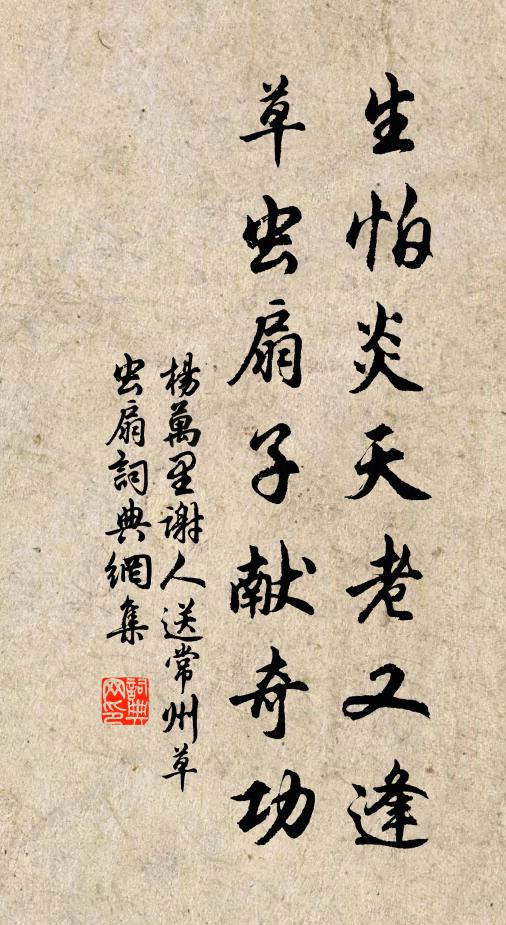 生怕炎天老又逢
草虫扇子献奇功
楊萬里谢人送常州草
虫扇詞典網集
詞典
网印